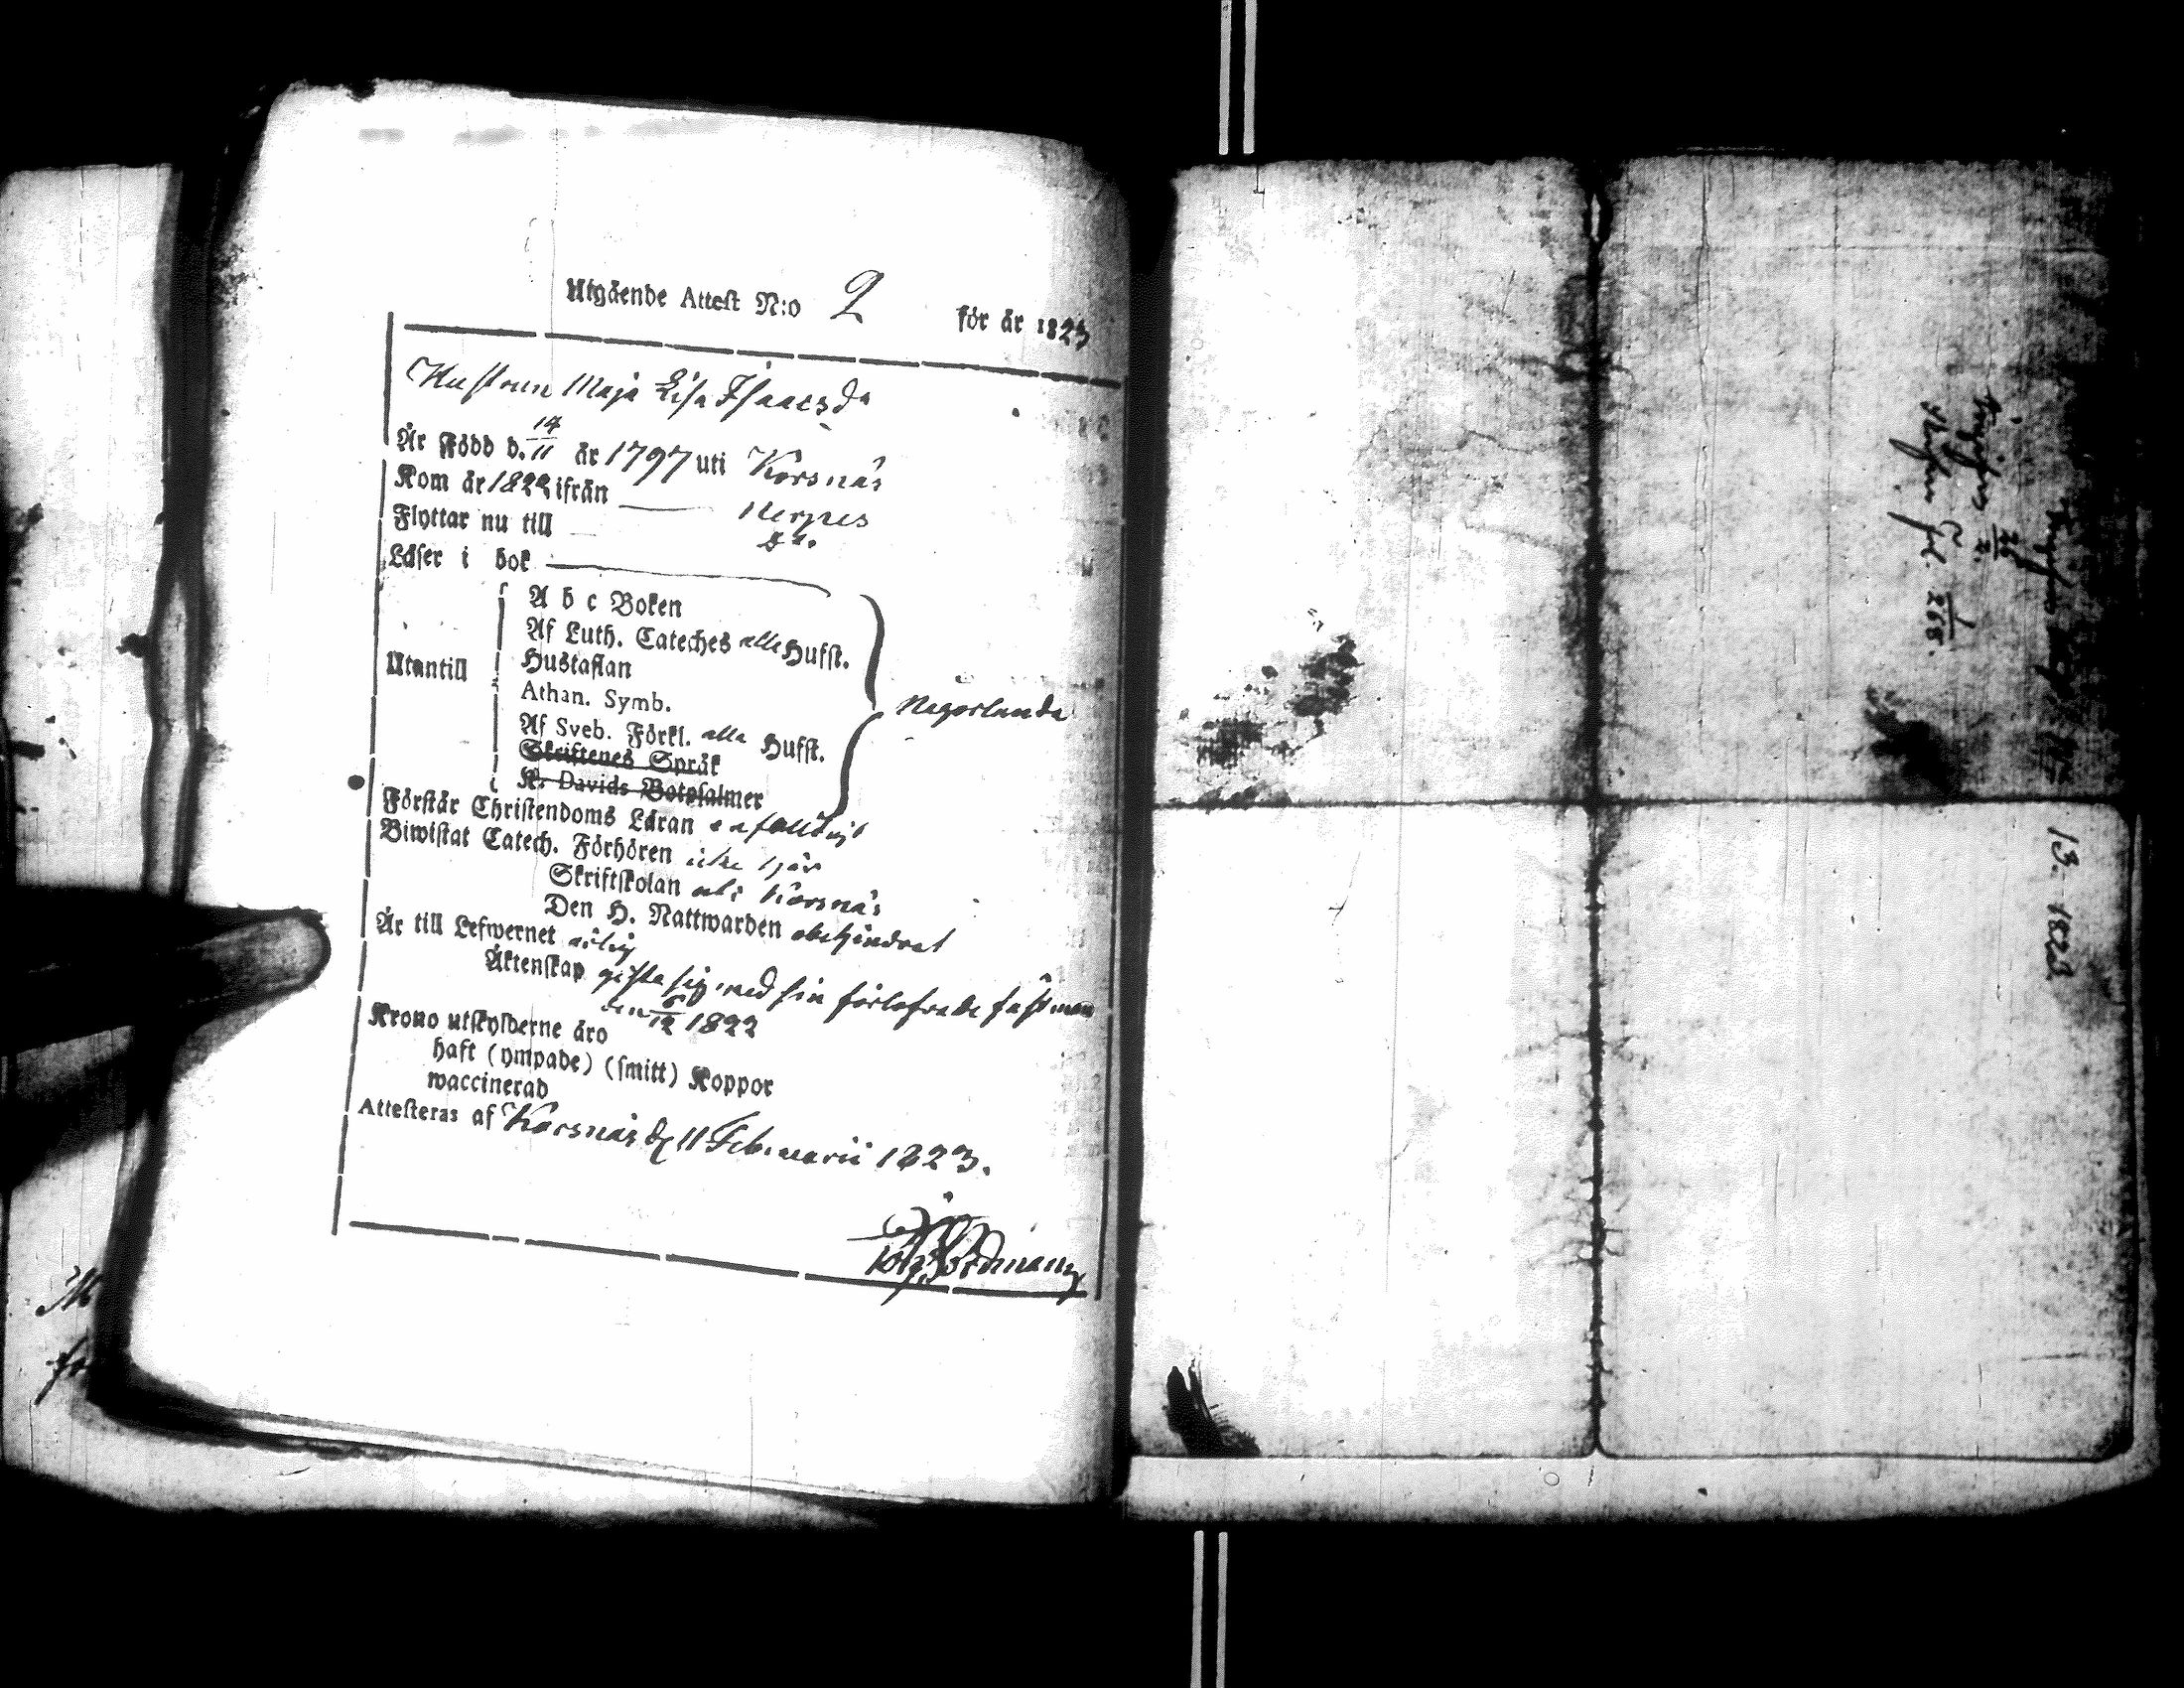 Utgående Attest N:o 2 för år 1823
Hustrun Maja Lisa Isaacsdr
Är Född d. 14/11 år 1797 uti Korsnäs
Kom år 1822 ifrån Nerpes
Flyttar nu till do.
Läser i bok
A b c Boken
Af Luth. Cateches alla Hufst.
Utantill
Hustaflan
Athan. Symb.
någorlunda
Af Sveb. Förkl. alla Hufst.
Skriftenes Språk
K. Davids Botpsalmer
Förstår Christendoms Läran enfaldigt
Biwistat Catech. Förhören icke
Skriftskolan uti Korsnäs
Den H. Nattwarden obehindrat
Är till Lefwernet ärlig
Äktenskap gifta sig med sin förlofvade fästman
den 6/12 1822
Krono utskylderne äro
haft (ympade) (smitt) Koppor
waccinerad
Attesteras af Korsnäs d. 11 Februarii 1823.
fol. 268.
13. 1823